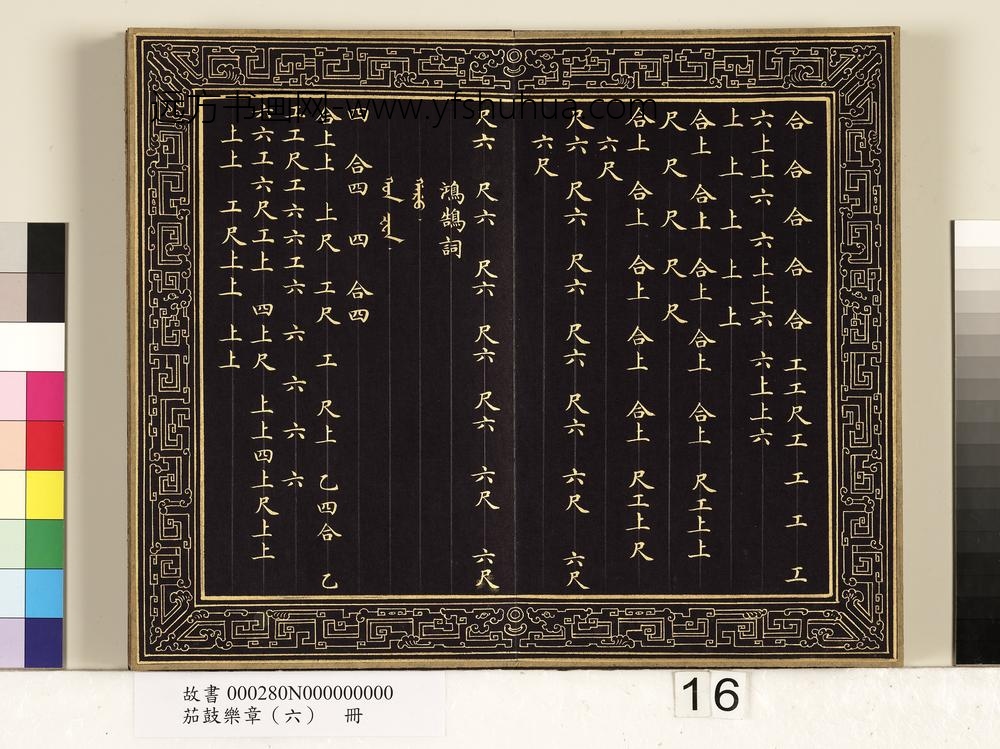 合 合 合 合 合 工工尺工 工 工 工
六上上六 六上上六 六上上六
上 上 上 上 上
合上 合上 合上 合上 合上 尺工上上
尺 尺 尺 尺 尺
合上 合上 合上 合上 合上 尺工上尺
六尺
尺六 尺六 尺六 尺六 尺六 六尺 六尺
六尺
尺六 尺六 尺六 尺六 尺六 六尺 六尺
鴻鵠詞
四 合四 四 合四
合上上 上尺 工尺 工 尺上 乙四合 乙
工工尺工六六工六 六 六 六 六
六工六尺工上 四上尺 上上四上尺上上
上上 工尺上上 上上
四方书画网-www.yfshuhua.com
故書 000280N000000000
茄鼓樂章（六） 冊
16